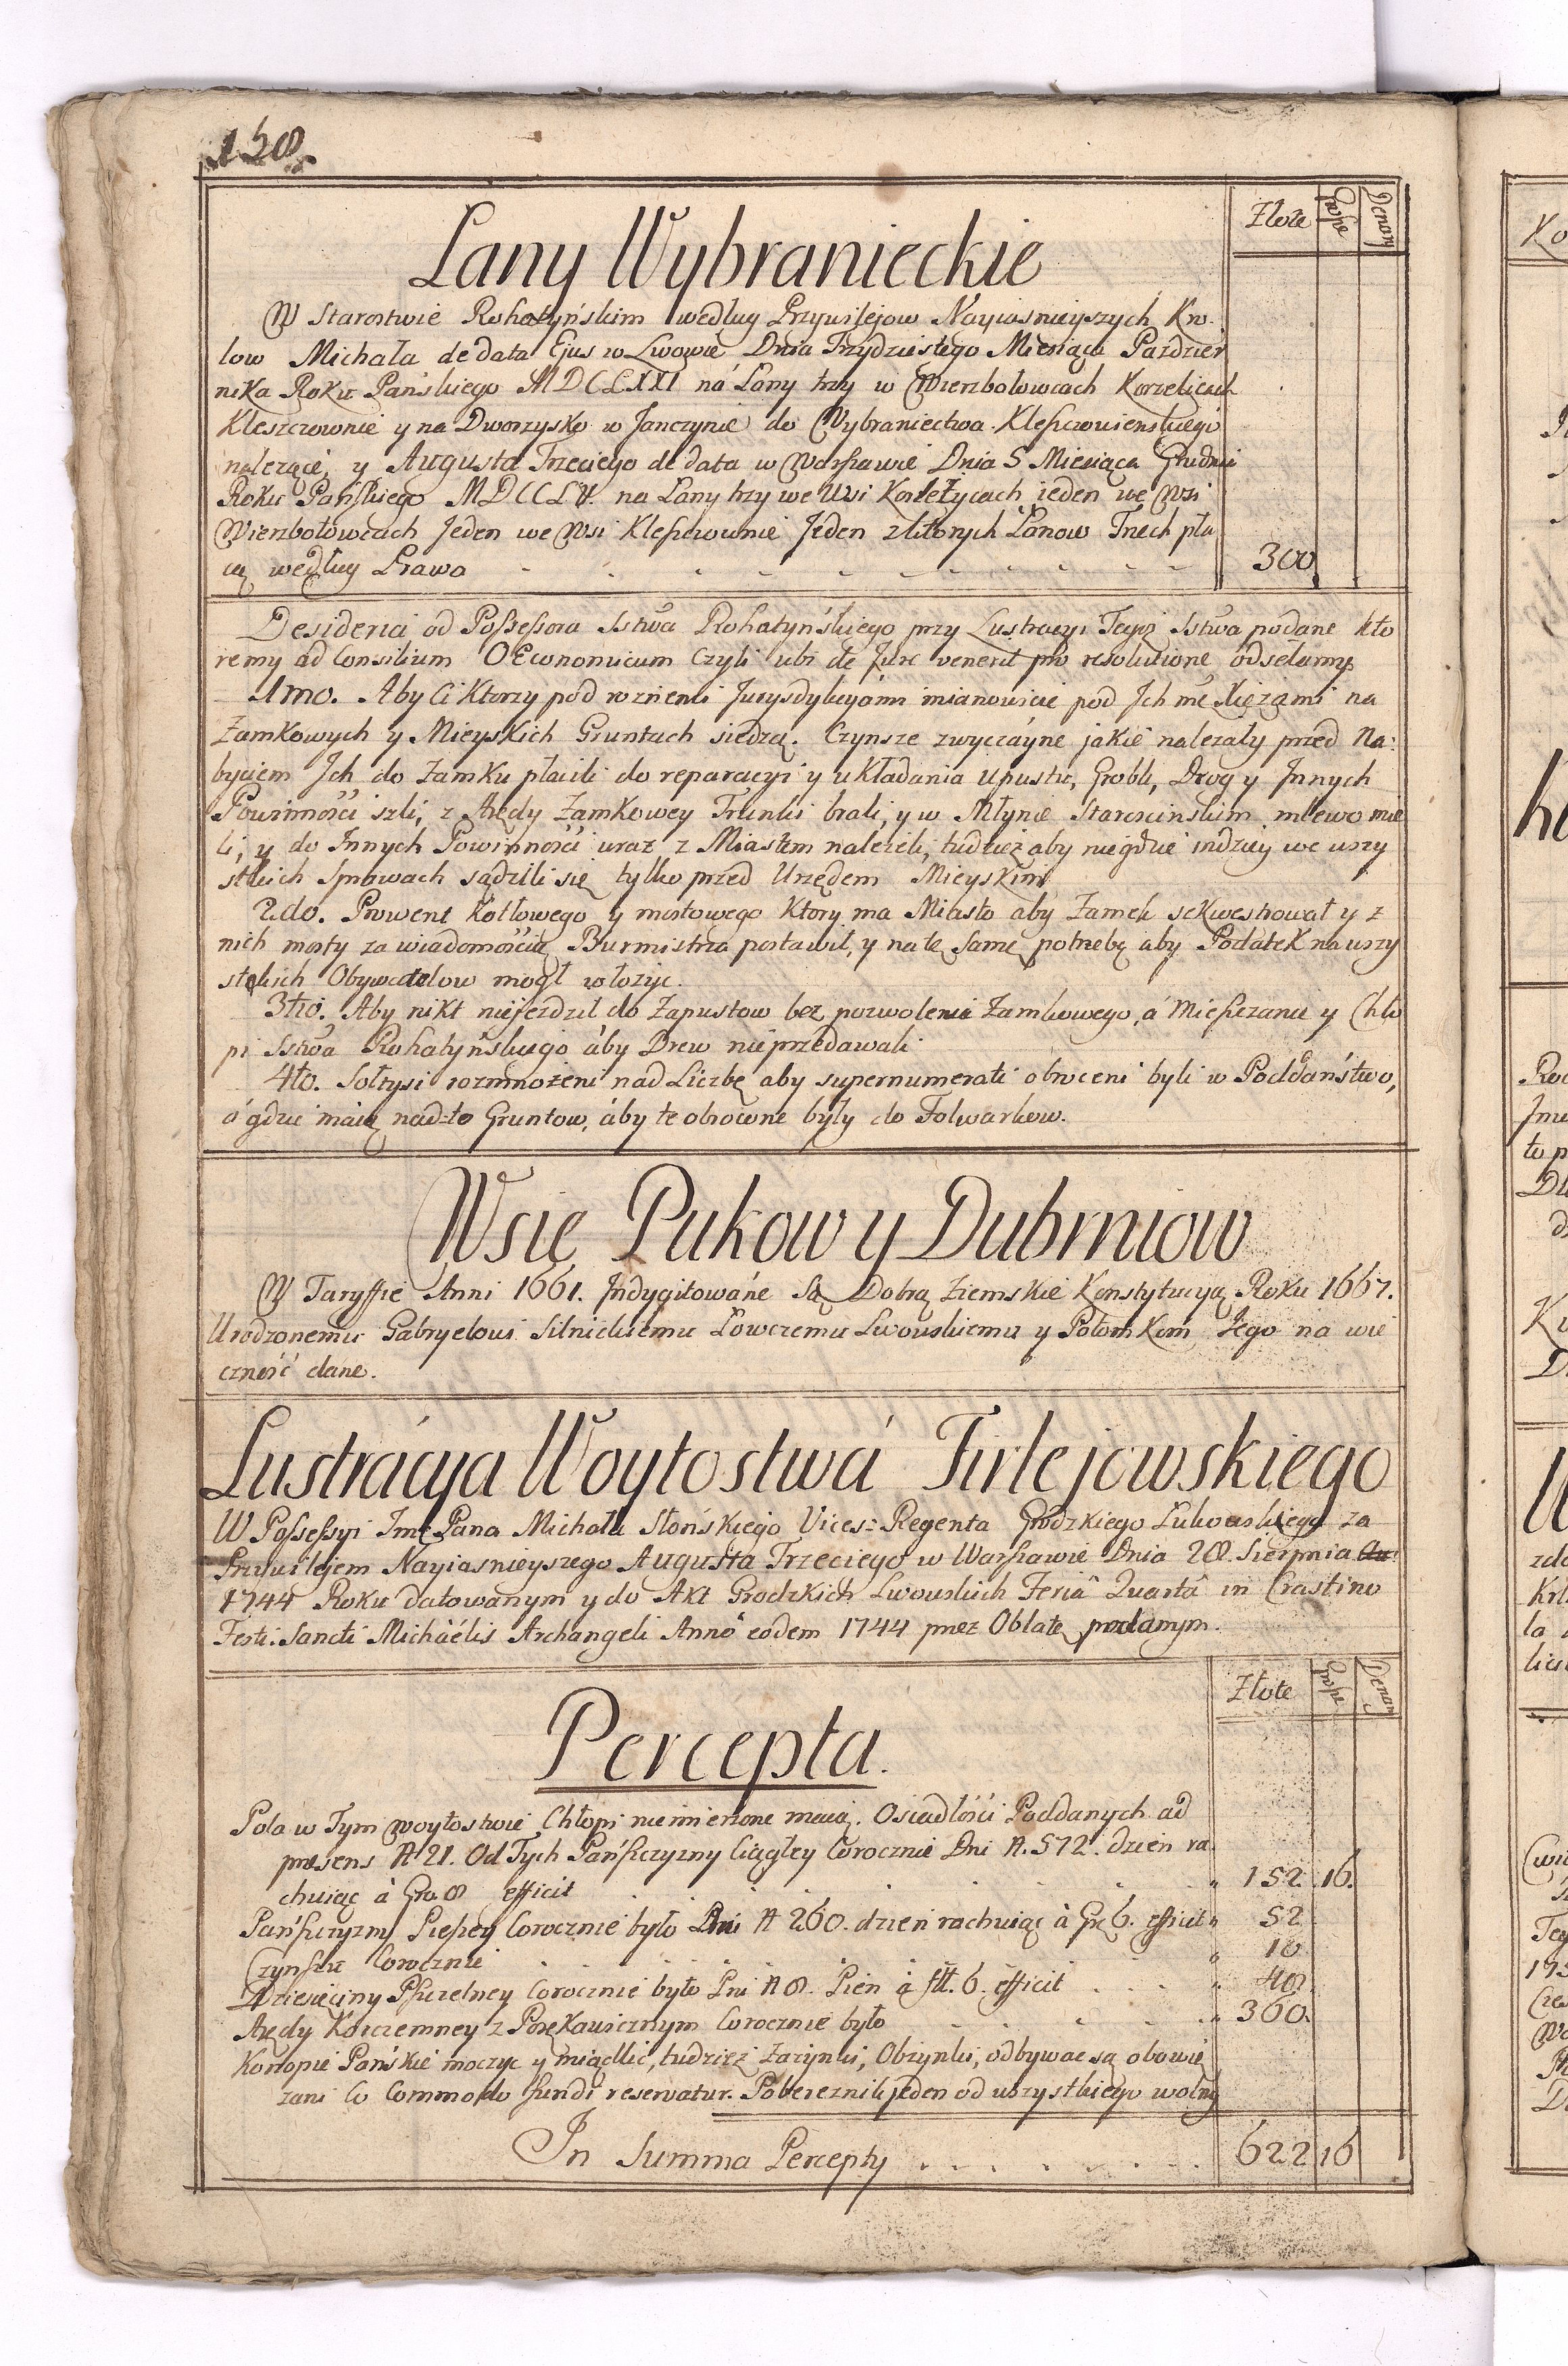 158.
Złote Grosze Denary
Łany Wybranieckie
W Starostwie Rohatyńskim według Przywilejow Nayiasnieyszych Kro
low Michała de data Ejus w Lwowie Dnia Trzydziestego Miesiąca Pazdzier
nika Roku Pańskiego MDCLXXI ná Łany trzy w Wierzbołowcach Korzelicach
Kleszczownie y na Dworzysko w Janczynie do Wybraniectwa Kleszczowienskiego
należące, y Augusta Trzeciego de data w Warszawie Dnia 5 Miesiąca Grudnia
Roku Pańskiego MDCCLV. na Łany trzy we Wsi Korzelycach jeden we Wsi
Wierzbołowcach Jeden we Wsi Kleszczownie Jeden z ktorych Łanow Trzech pła
cą według Prawa 300
Desideria od Possessora Sstwa Rohatyńskiego przy Lustracyi Tegoż Sstwa podane kto
remy ad Consilium OEconomicum czyli ubi de Jure venerit pro resolutione odsełamy
1mo. Aby Ci Ktorzy pod roznemi Jurysdykcyámi mianowicie pod Ichmć Xiężami na
Zamkowych y Mieyskich Gruntach siedzą. Czynsze zwyczáyne jakie nalezały przed Na:
byciem Ich do Zamku płacili do reparacyi y układania Upustu, Grobli, Drog y Innych
Powinności szli, z Arędy Zamkowey Trunki brali, y w Młynie Starościnskim mlewo mie
li, y do Innych Powinności wraz z Miastem należeli, tudzież aby nie gdzie indziey we wszy
stkich Sprawach sądzili się tylko przed Urzędem Mieyskim
2do. Prowent Kotłowego y mostowego Ktory ma Miasto aby Zamek sekwestrował y z
nich mosty za wiadomością Burmistrza postawił, y na tę samę potrzebę aby Podatek na wszy
stkich Obywatelow mogł włożyc.
3tio. Aby nikt niejezdził do Zapustow bez pozwolenia Zamkowego, á Mieszczanie y Chło
pi Sstwa Rohatyńskiego áby Drew nieprzedawali
4to. Sołtysi rozmnożeni nad Liczbę aby supernumerati obroceni byli w Poddaństwo,
á gdzie máią nad to Gruntow, áby te obrocone były do Folwarkow.
Wsie Pukow y Dubrniow
W Taryffie Anni 1661. Indygitowáne Są Dobrą Ziemskie Konstytucyą Roku 1667.
Urodzonemu Gabryelowi Silnickiemu Łowczemu Lwowskiemu y Potomkom Jego na wie
czność dane.
Lustrácya Woytostwá Firlejowskiego
W Possessyi Jmć Pana Michała Słońskiego Vices=Regenta Grodzkiego Lwowskiego za
Przywilejem Nayiasnieyszego Augusta Trzeciego w Warszawie Dnia 28. Sierpnia
1744 Roku datowanym y do Akt Grodzkich Lwowskich Feriâ Quartâ in Crastino
Festi Sancti Michäélis Archangeli Anno eodem 1744 przez Oblatę podanym.
Złote Grosze Denary
Percepta.
Pola w Tym Woytostwie Chłopi niemierzone maią. Osiadłości Poddanych ad
presens N 21. Od Tych Pańszczyzny Ciągłey Corocznie Dni N. 572. dzien ra
chuiąc à Gro. 8 efficit 152 16.
Pańszczyzny Pieszey Corocznie było Dni N 260. dzień rachuiąc à Gr. 6. efficit 52
Czynszu Corocznie 10
Dziesięciny Pszczelney Corocznie było Pni N 8. Pień á fł. 6. efficit 48
Arędy Korczemney z Porękawicznym Corocznie było 360.
Konopie Pańskie moczyc y miądlic, tudzież Zażynki, Obzynki, odbywac są obowię
zani Co Commodo fundi reservatur. Pobereznik jeden od wszystkiego wolny
In Summa Percepty 622 16